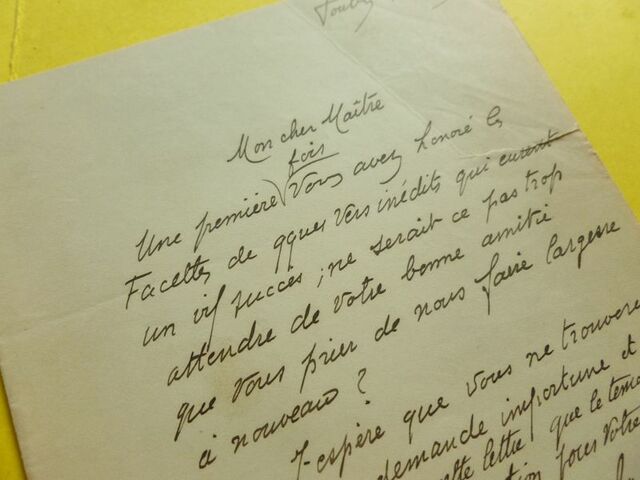 Mon cher Maître
fois
Une première Vous avez honoré les
Facettes de qques vers inédits qui eurent
un vif succès ; ne serait ce pas trop
attendre de votre bonne amitié
que vous prier de nous faire largesse
à nouveau ?
J'espère que vous ne trouverez
demande importune et
lettre, que le
sous votre